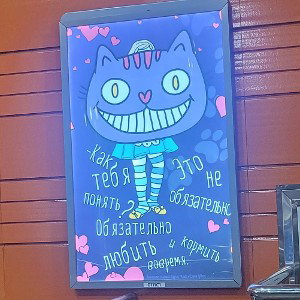 -Как
тебя
понять?
-Это
не
обязательно.
Обязательно
любить
и кормить
вовремя.